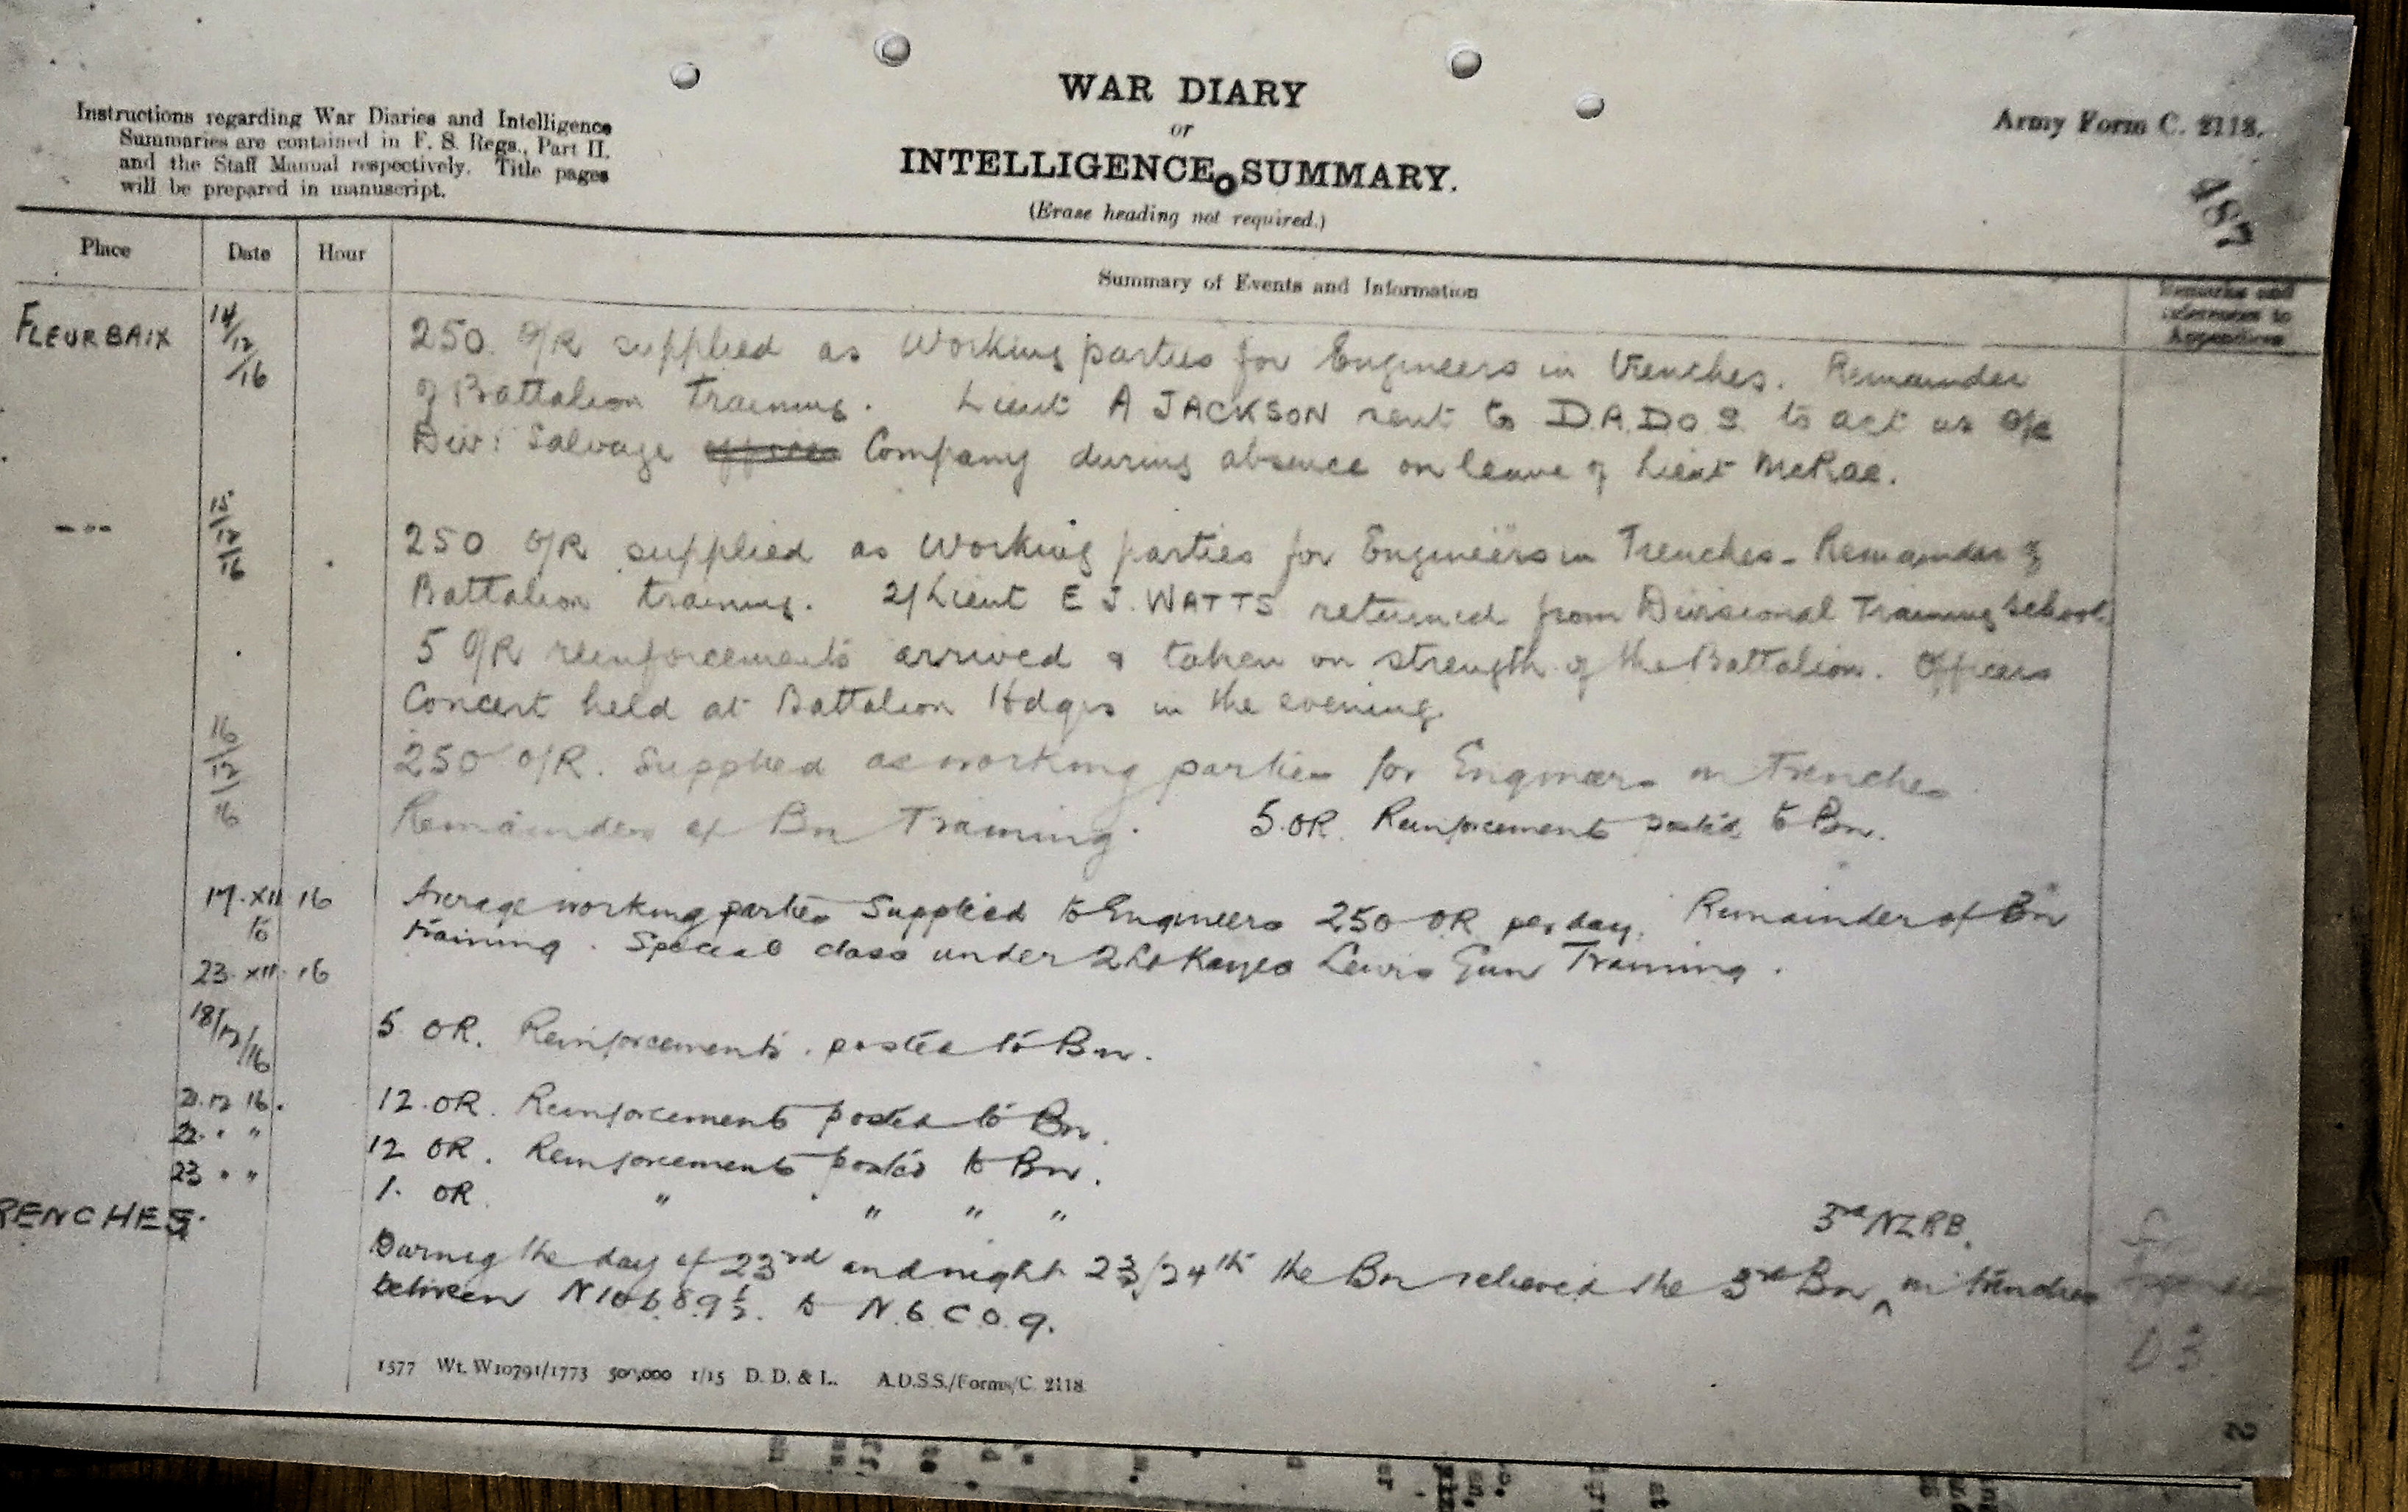 WAR DIARY
or
INTELLIGENCE SUMMARY.
(Erase heading not required.)
Instructions regarding War Diaries and Intelligence
Summaries are contained in F. S. Regs., Part II.
and the Staff Manual respectively. Title pages
will be prepared in manuscript.
Army Form C. 2118.
487
Place Date Hour Summary of Events and Information Remarks and
references to
Appendices
FLEURBAIX 14/12/16 250 O/R supplied as Working parties for Engineers in Trenches. Remainder
of Battalion Training. Lieut A JACKSON sent to D.A.D.O.S. to act as O/C
Div: Salvage Company during absence on leave of Lieut McRae.
15/12/16 250 O/R supplied as Working parties for Engineers in Trenches - Remainder of
Battalion training. 2/Lieut E J. WATTS returned from Divisional Training School.
5 O/R reinforcements arrived & taken on strength of the Battalion. Officers
Concert held at Battalion Hdqrs in the evening.
16/12/16 250 O/R. Supplied as working parties for Engineers in Trenches
Remainder of Bn Training. 5. OR. Reinforcements posted to Bn.
17.XII 16 Average working parties Supplied to Engineers 250 OR per day. Remainder of Bn
to training. Special class under 2Lt Kayes Lewis Gun Training.
23.XII.16
18/12/16 5 OR. Reinforcements. posted to Bn.
21.12 16. 12. OR. Reinforcements posted to Bn.
22. " " 12 OR. Reinforcements posted to Bn.
23 " " 1. OR " " " "
RENCHES. 3rd NZRB.
During the day of 23rd and night 23/24th the Bn relieved the 3rd Bn ^ in trenches
between N10b.8.9½. to N.6.C.0.9.
D3
1577 Wt. W10791/1773 500,000 1/15 D. D. & L. A.D.S.S./Forms/C. 2118.
2